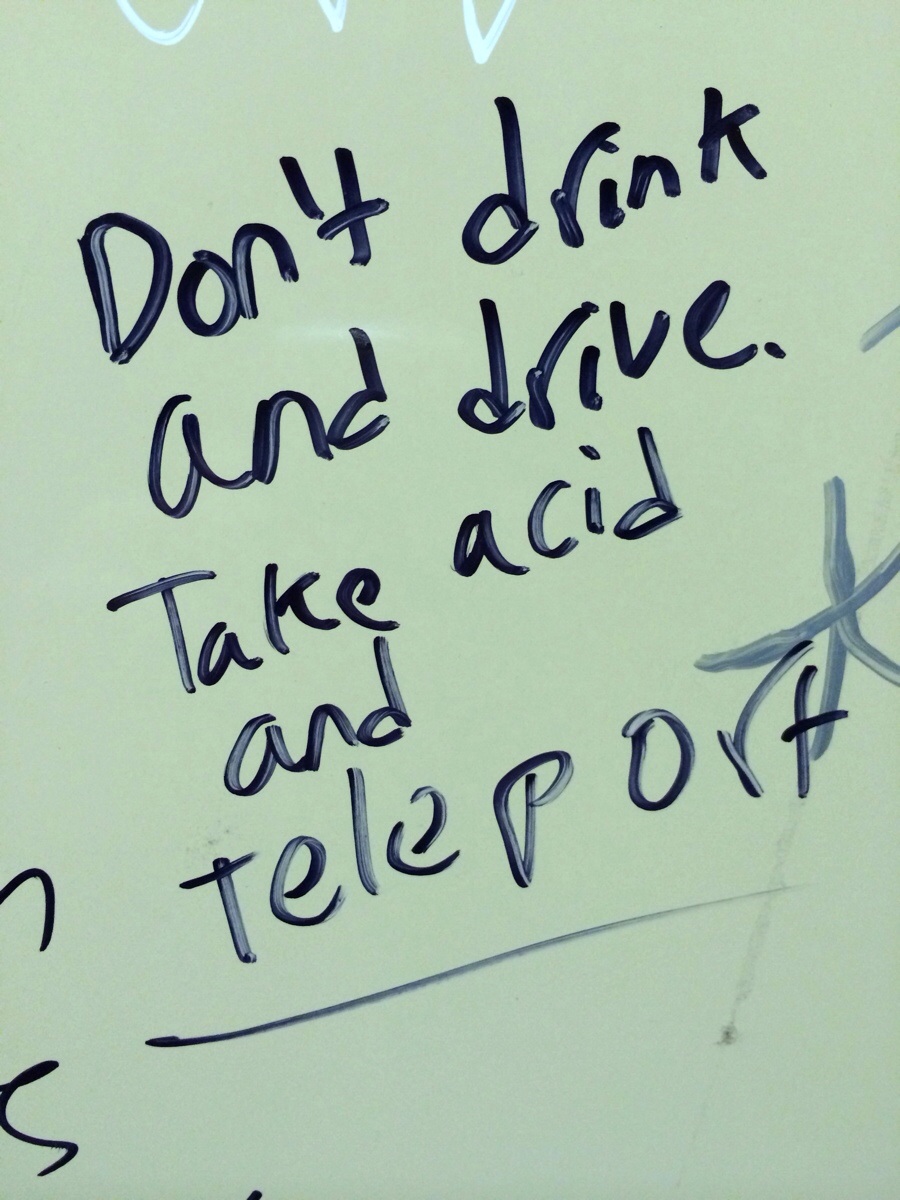 Don't drink
and drive.
Take acid
and
teleport